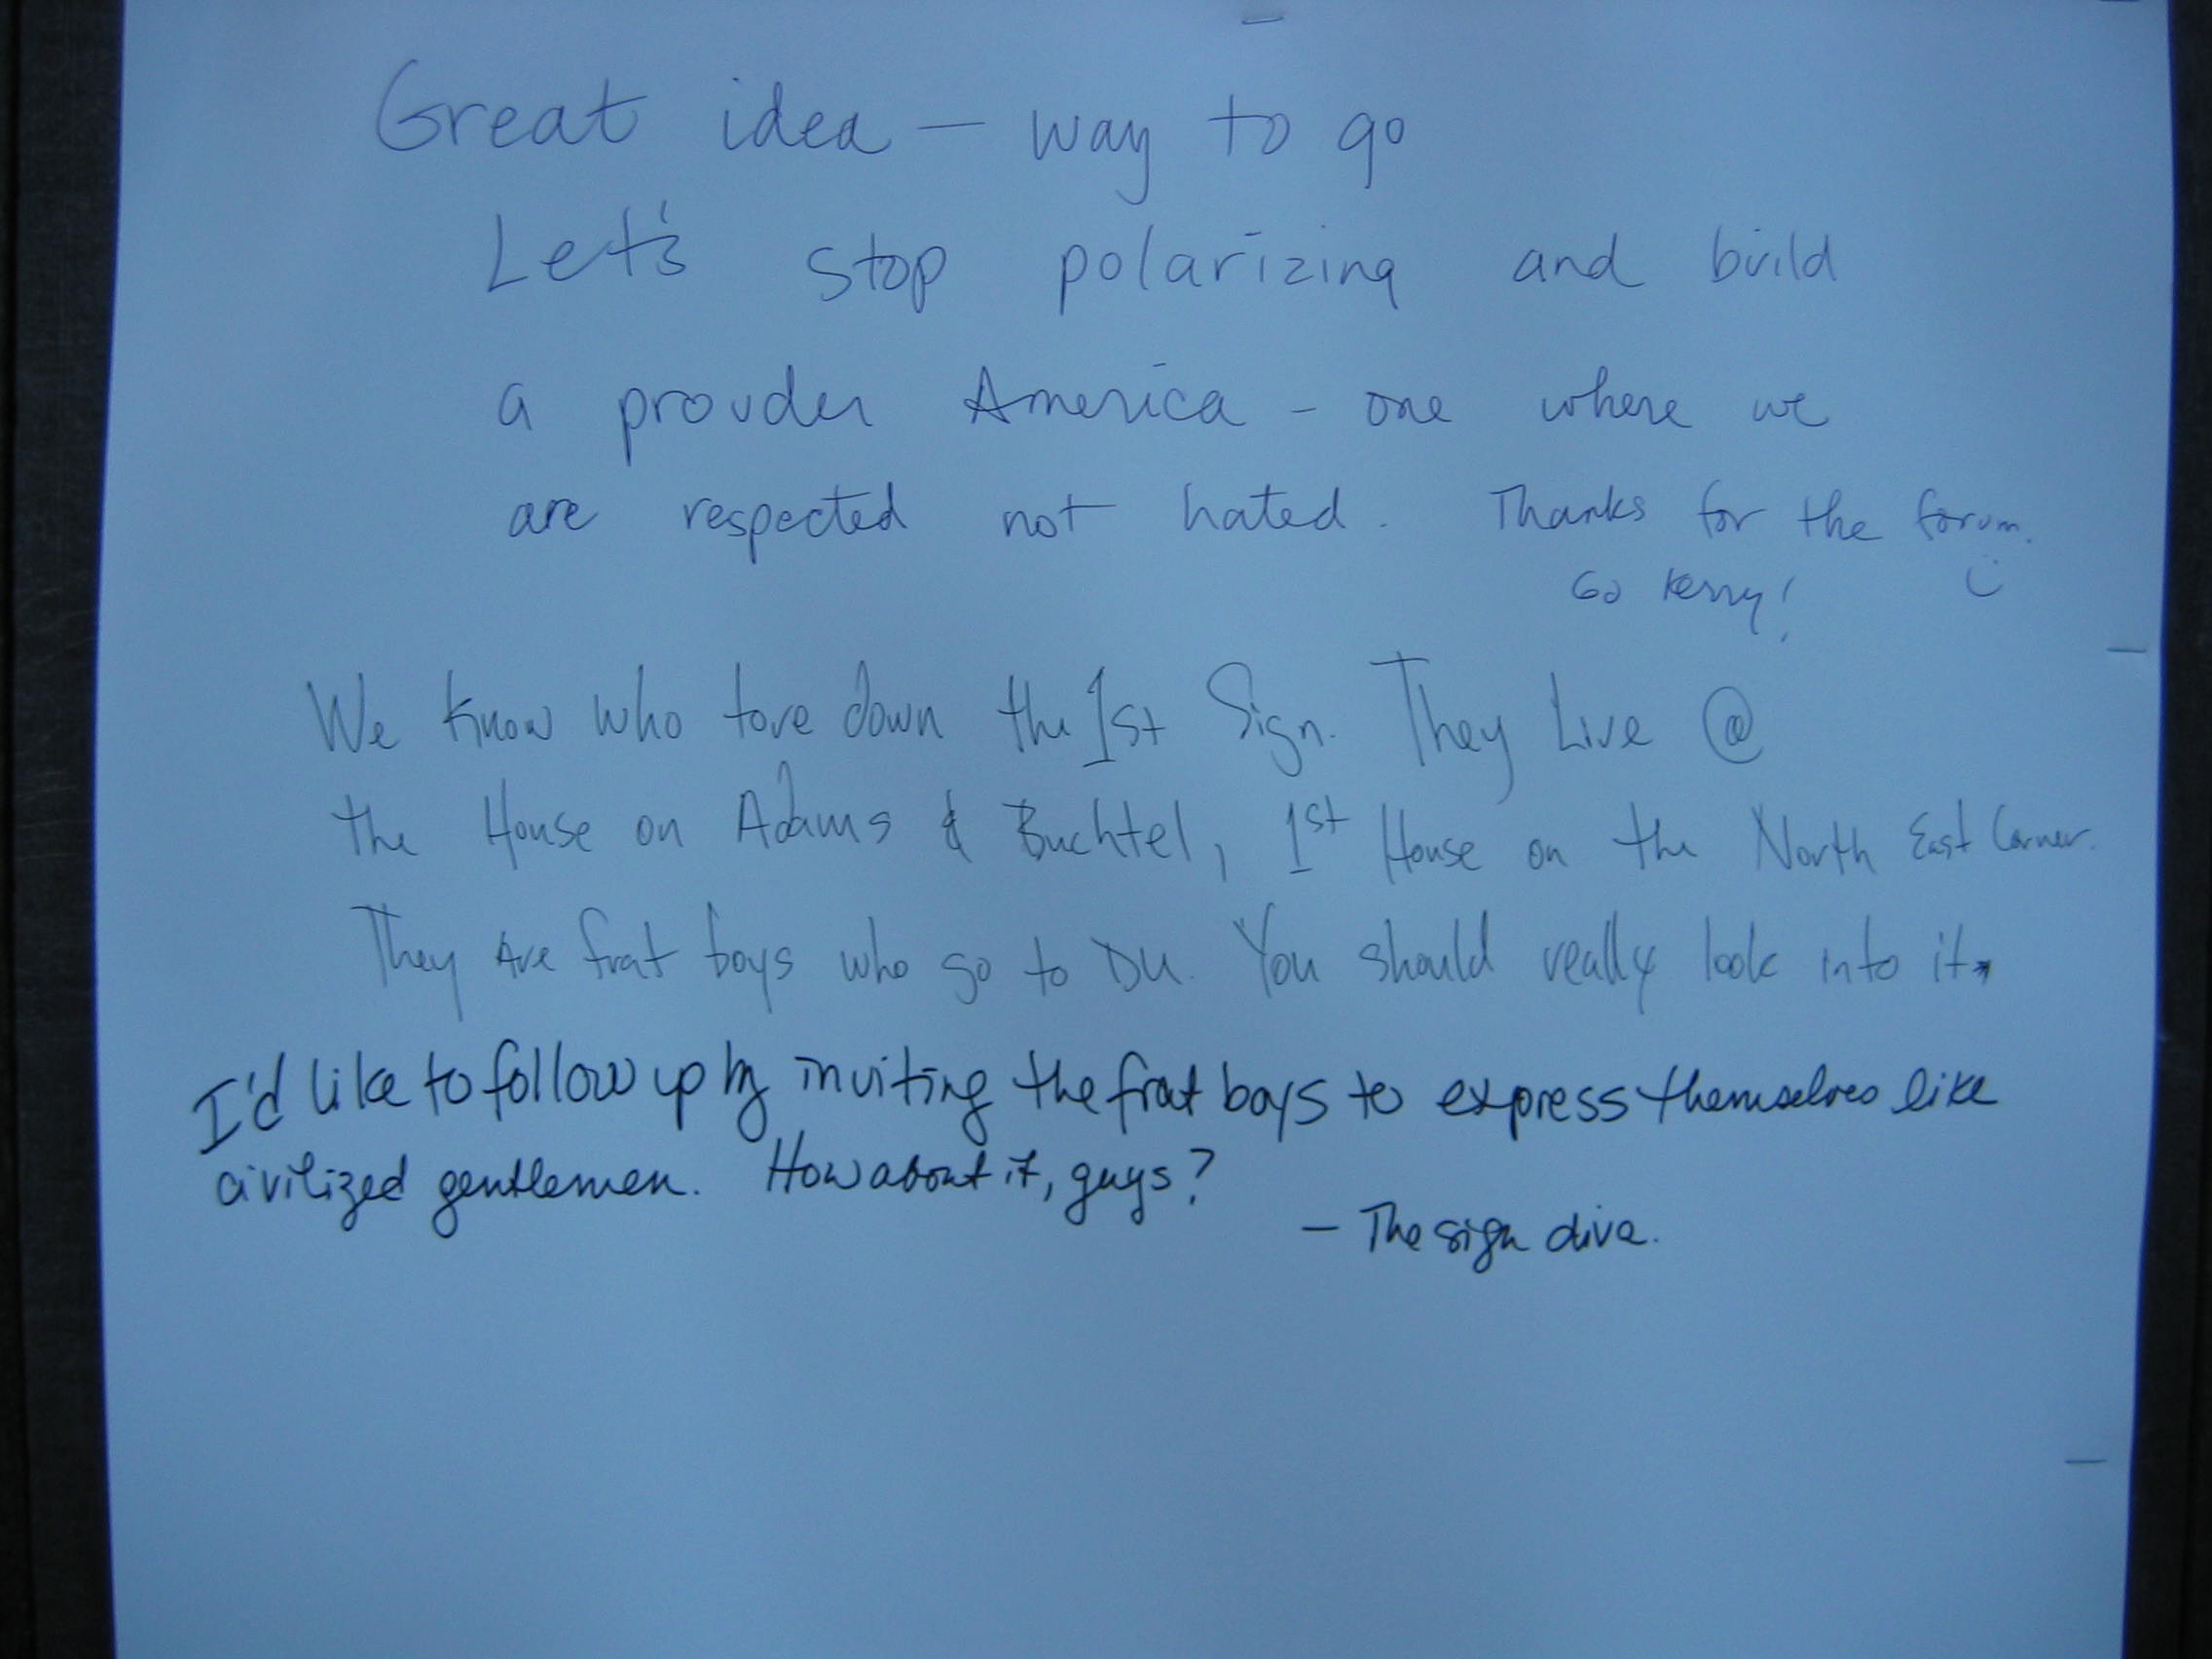 Great idea — way to go
Let's stop polarizing and build
a prouder America - one where we
are respected not hated. Thanks for the forum.
Go Kerry!
We know who tore down the 1st Sign. They Live @
the House on Adams & Buchtel, 1st House on the North East Corner.
They Are frat boys who go to DU. You should really look into it.
I'd like to follow up by inviting the frat boys to express themselves like
civilized gentlemen. How about it, guys?
— The sign diva.